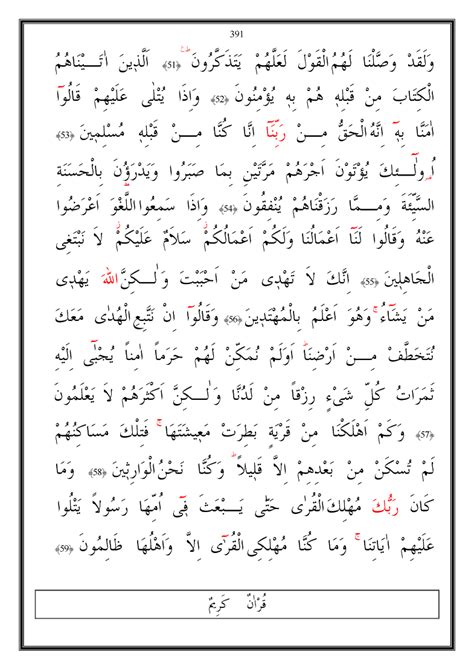 391
وَلَقَدْ وَصَّلْنَا لَهُمُ الْقَوْلَ لَعَلَّهُمْ يَتَذَكَّرُونَ ﴿51﴾ اَلَّذِينَ اٰتَيْنَاهُمُ
الْكِتَابَ مِنْ قَبْلِهِ هُمْ بِهِ يُؤْمِنُونَ ﴿52﴾ وَاِذَا يُتْلٰى عَلَيْهِمْ قَالُوٓا
اٰمَنَّا بِهِٓ اِنَّهُ الْحَقُّ مِنْ رَبِّنَٓا اِنَّا كُنَّا مِنْ قَبْلِهِ مُسْلِمِينَ ﴿53﴾
اُولٰٓئِكَ يُؤْتَوْنَ اَجْرَهُمْ مَرَّتَيْنِ بِمَا صَبَرُوا وَيَدْرَؤُنَ بِالْحَسَنَةِ
السَّيِّئَةَ وَمِمَّا رَزَقْنَاهُمْ يُنْفِقُونَ ﴿54﴾ وَاِذَا سَمِعُوا اللَّغْوَ اَعْرَضُوا
عَنْهُ وَقَالُوا لَنَٓا اَعْمَالُنَا وَلَكُمْ اَعْمَالُكُمْۘ سَلَامٌ عَلَيْكُمْۘ لَا نَبْتَغِى
الْجَاهِلِينَ ﴿55﴾ اِنَّكَ لَا تَهْدِى مَنْ اَحْبَبْتَ وَلٰكِنَّ اللّٰهَ يَهْدِى
مَنْ يَشَٓاءُۚ وَهُوَ اَعْلَمُ بِالْمُهْتَدِينَ ﴿56﴾ وَقَالُٓوا اِنْ نَتَّبِعِ الْهُدٰى مَعَكَ
نُتَخَطَّفْ مِنْ اَرْضِنَاۜ اَوَلَمْ نُمَكِّنْ لَهُمْ حَرَمًا اٰمِنًا يُجْبٰٓى اِلَيْهِ
ثَمَرَاتُ كُلِّ شَىْءٍ رِزْقًا مِنْ لَدُنَّا وَلٰكِنَّ اَكْثَرَهُمْ لَا يَعْلَمُونَ
﴿57﴾ وَكَمْ اَهْلَكْنَا مِنْ قَرْيَةٍ بَطِرَتْ مَعِيشَتَهَاۚ فَتِلْكَ مَسَاكِنُهُمْ
لَمْ تُسْكَنْ مِنْ بَعْدِهِمْ اِلَّا قَلِيلًاۜ وَكُنَّا نَحْنُ الْوَارِثِينَ ﴿58﴾ وَمَا
كَانَ رَبُّكَ مُهْلِكَ الْقُرٰى حَتّٰى يَبْعَثَ فِٓى اُمِّهَا رَسُولًا يَتْلُوا
عَلَيْهِمْ اٰيَاتِنَاۚ وَمَا كُنَّا مُهْلِكِى الْقُرٰٓى اِلَّا وَاَهْلُهَا ظَالِمُونَ ﴿59﴾
قُرْاٰنٌ كَرِيمٌ